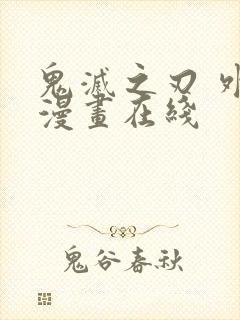 鬼滅之刃 外
漫畫在綫
鬼谷春秋